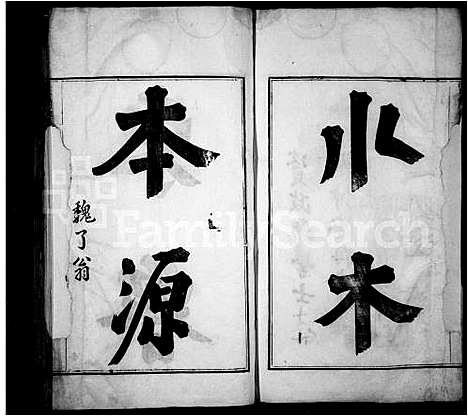 水木
本源
魏了翁
FamilySearch